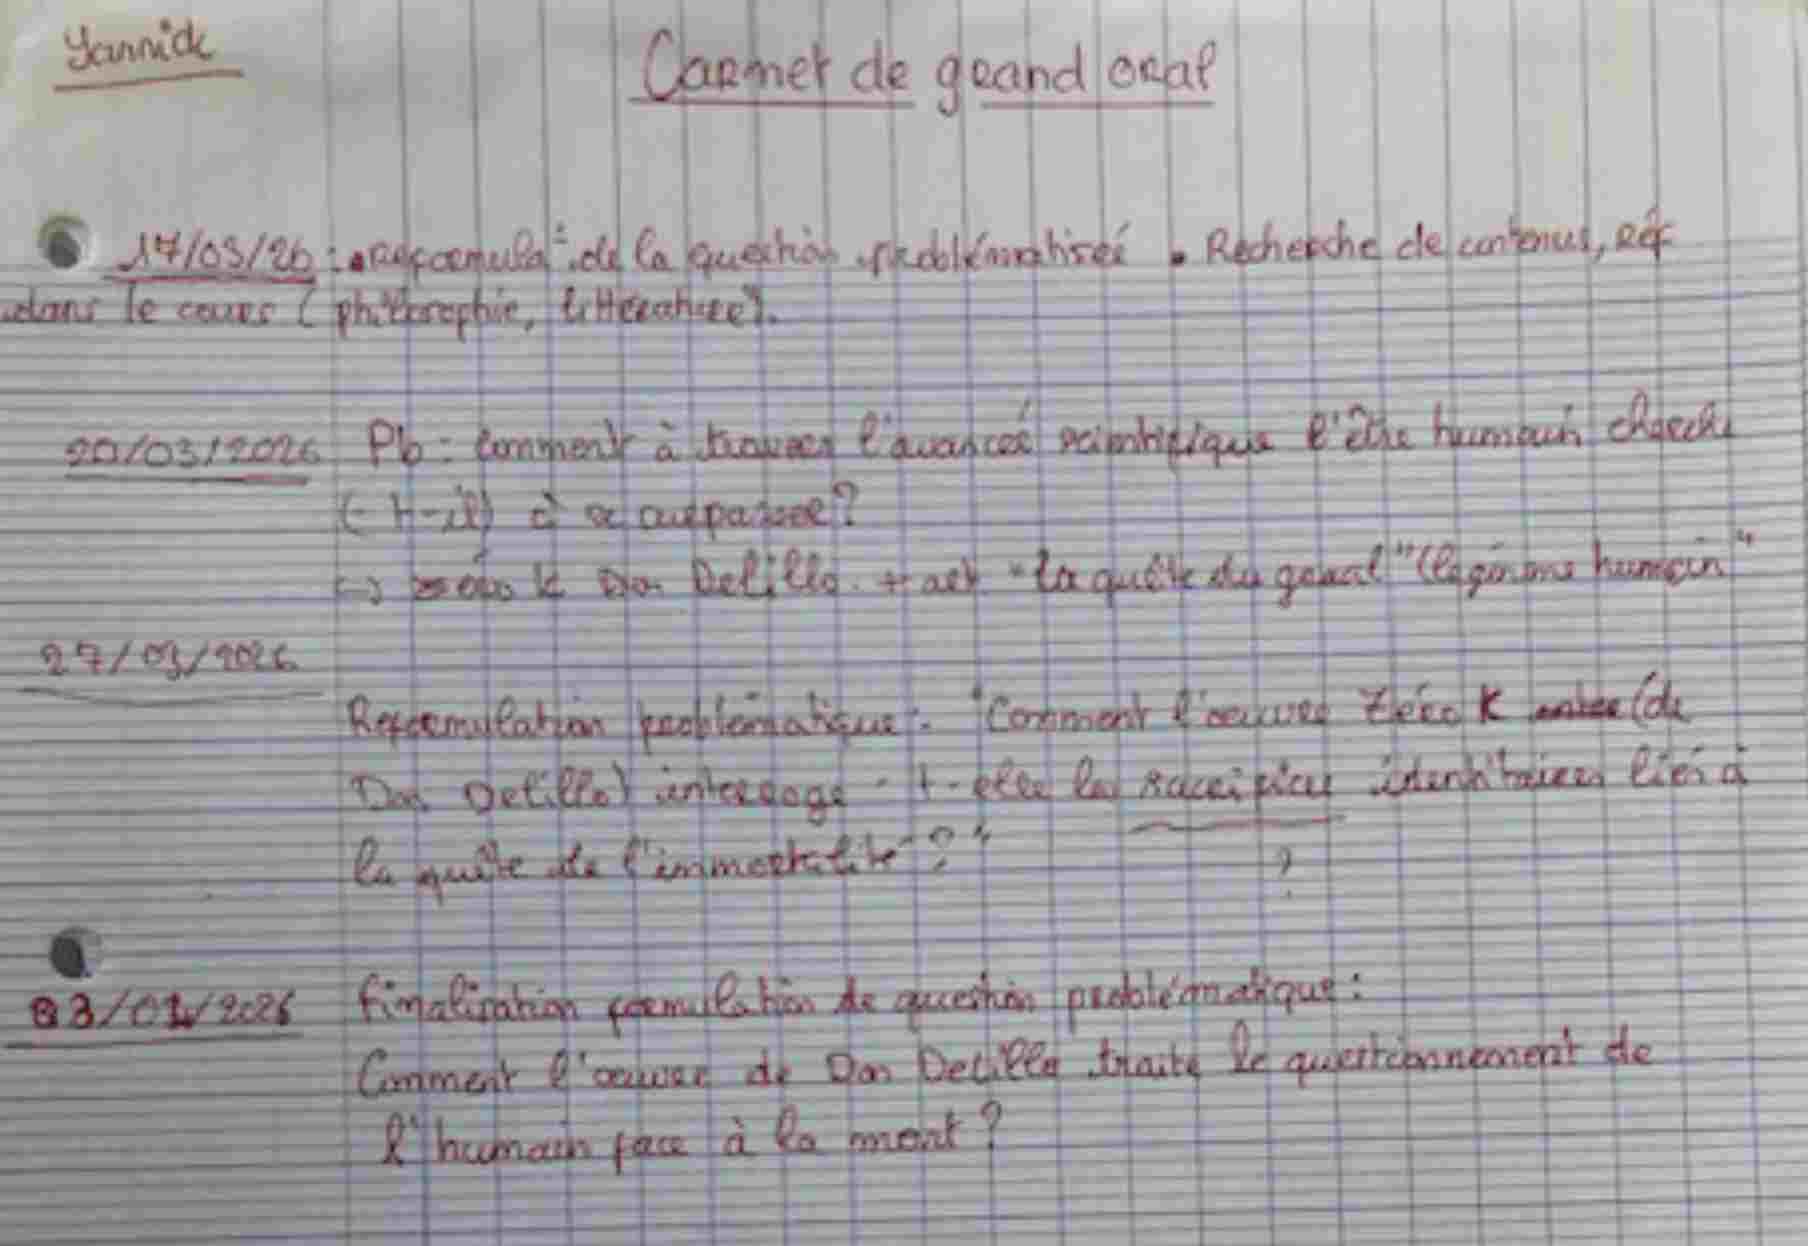 Yannick
Carnet de grand oral
17/03/26 : • Reformula° de la question problématisée • Recherche de contenus, réf
dans le cours (philosophie, littérature).
20/03/2026 Pb : Comment à travers l'avancée scientifique l'être humain cherche
(-t-il) à se surpasser?
↳ zéro K Don Delillo. + art "la quête du graal" "(le génome humain"
27/03/2026
Reformulation problématique : "Comment l'oeuvre Zéro K (de
Don Delillo) interroge-t-elle les sacrifices identitaires lié à
la quête de l'immortalité ?"
?
03/04/2026 finalisation formulation de question problématique :
Comment l'oeuvre de Don Delillo traite le questionnement de
l'humain face à la mort ?